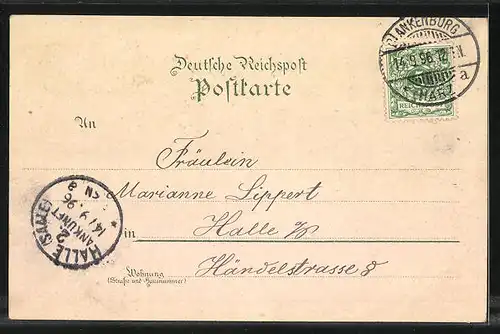 Deutsche Reichspost
Postkarte
BLANKENBURG
14.9.96.
a
* HARZ
REICHSPOST
An
Fräulein
Marianne Lippert
in Halle a/S
Händelstrasse 8
HALLE (SAALE)
2
ANKUNFT
14/9 96
8 N
Wohnung
(Straße und Hausnummer)